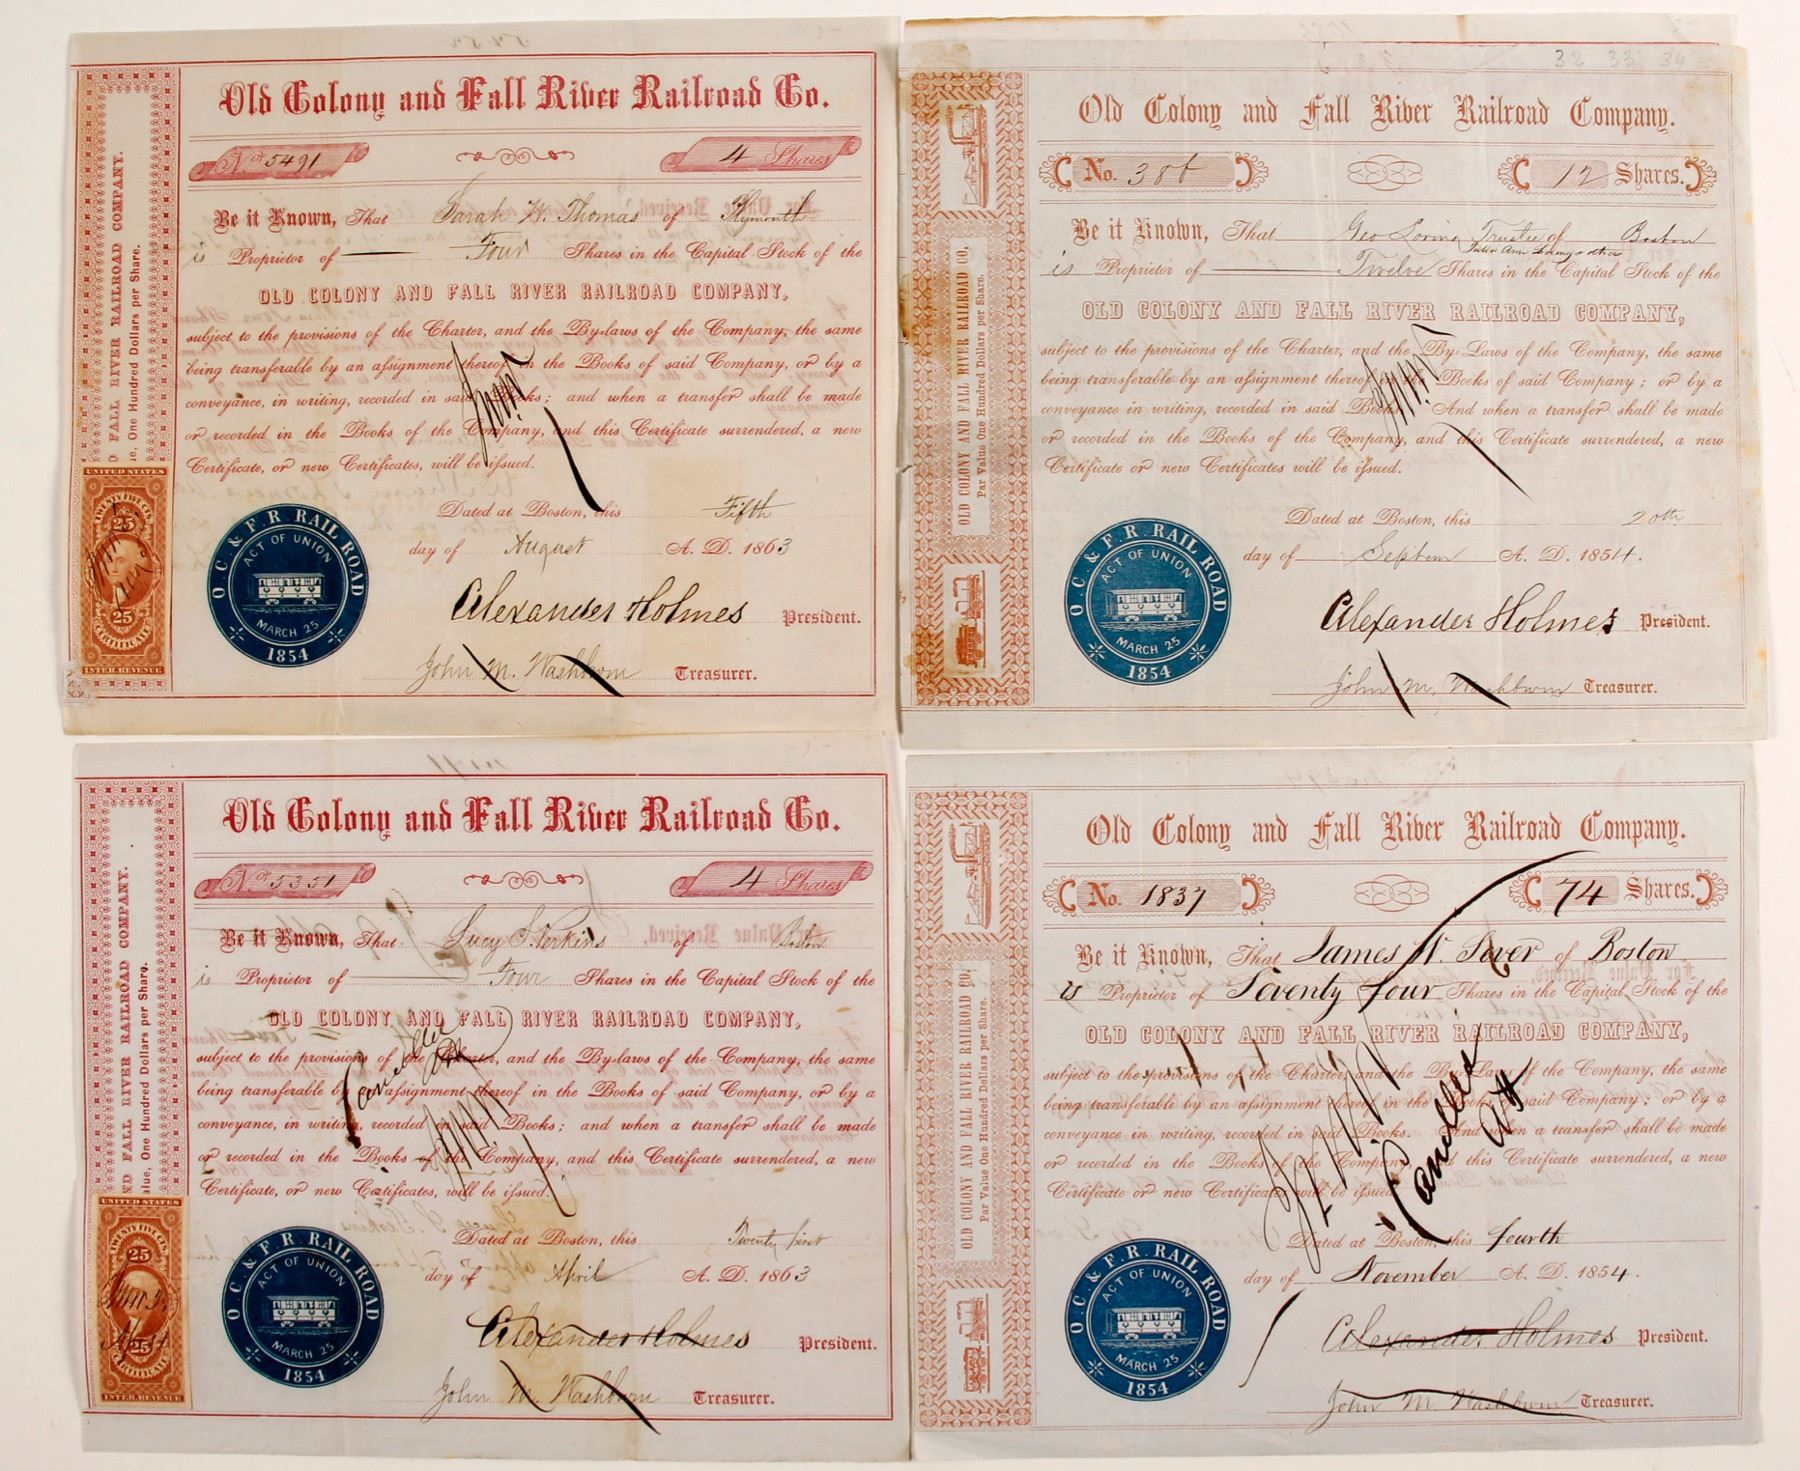 Old Colony and Fall River Railroad Co.
No. 5491
4 Shares
Be it Known, That Sarah W. Thomas of Plymouth
is Proprietor of Four Shares in the Capital Stock of the
OLD COLONY AND FALL RIVER RAILROAD COMPANY,
subject to the provisions of the Charter, and the By-laws of the Company, the same
being transferable by an assignment thereof in the Books of said Company, or by a
conveyance, in writing, recorded in said Books; and when a transfer shall be made
or recorded in the Books of the Company, and this Certificate surrendered, a new
Certificate, or new Certificates, will be issued.
Dated at Boston, this Fifth
day of August A. D. 1863
Alexander Holmes President.
John M. Washburn Treasurer.
FALL RIVER RAILROAD COMPANY.
One Hundred Dollars per Share.
UNITED STATES
TWENTY FIVE CTS.
25
25
CERTIFICATE
INTER. REVENUE
O. C. & F. R. RAIL ROAD
ACT OF UNION
MARCH 25
1854
Old Colony and Fall River Railroad Company.
32 33 34
No.
12 Shares.
Be it Known, That Geo Loring Trustee of Boston
is Proprietor of Twelve Shares in the Capital Stock of the
OLD COLONY AND FALL RIVER RAILROAD COMPANY,
subject to the provisions of the Charter, and the By-Laws of the Company, the same
being transferable by an assignment thereof in the Books of said Company; or by a
conveyance in writing, recorded in said Books. And when a transfer shall be made
or recorded in the Books of the Company, and this Certificate surrendered, a new
Certificate or new Certificates will be issued.
Dated at Boston, this 20th
day of Septem A. D. 1854.
Alexander Holmes President.
John M. Washburn Treasurer.
OLD COLONY AND FALL RIVER RAILROAD CO.
Par Value One Hundred Dollars per Share.
O. C. & F. R. RAIL ROAD
ACT OF UNION
MARCH 25
1854
Old Colony and Fall River Railroad Co.
No. 5351
4 Shares
Be it Known, That Lucy S. Perkins of Boston
is Proprietor of Four Shares in the Capital Stock of the
OLD COLONY AND FALL RIVER RAILROAD COMPANY,
subject to the provisions of the Charter, and the By-laws of the Company, the same
being transferable by an assignment thereof in the Books of said Company, or by a
conveyance, in writing, recorded in said Books; and when a transfer shall be made
or recorded in the Books of the Company, and this Certificate surrendered, a new
Certificate, or new Certificates, will be issued.
Cancelled
Dated at Boston, this Twenty first
day of April A. D. 1863
Alexander Holmes President.
John M. Washburn Treasurer.
FALL RIVER RAILROAD COMPANY.
One Hundred Dollars per Share.
UNITED STATES
TWENTY FIVE CTS.
25
25
CERTIFICATE
INTER. REVENUE
O. C. & F. R. RAIL ROAD
ACT OF UNION
MARCH 25
1854
Old Colony and Fall River Railroad Company.
No. 1837
74 Shares.
Be it Known, That James W. Sever of Boston
is Proprietor of Seventy four Shares in the Capital Stock of the
OLD COLONY AND FALL RIVER RAILROAD COMPANY,
subject to the provisions of the Charter, and the By-Laws of the Company, the same
being transferable by an assignment thereof in the Books of said Company; or by a
conveyance in writing, recorded in said Books. And when a transfer shall be made
or recorded in the Books of the Company, and this Certificate surrendered, a new
Certificate or new Certificates will be issued.
Cancelled
Dated at Boston, this fourth
day of November A. D. 1854.
Alexander Holmes President.
John M. Washburn Treasurer.
OLD COLONY AND FALL RIVER RAILROAD CO.
Par Value One Hundred Dollars per Share.
O. C. & F. R. RAIL ROAD
ACT OF UNION
MARCH 25
1854